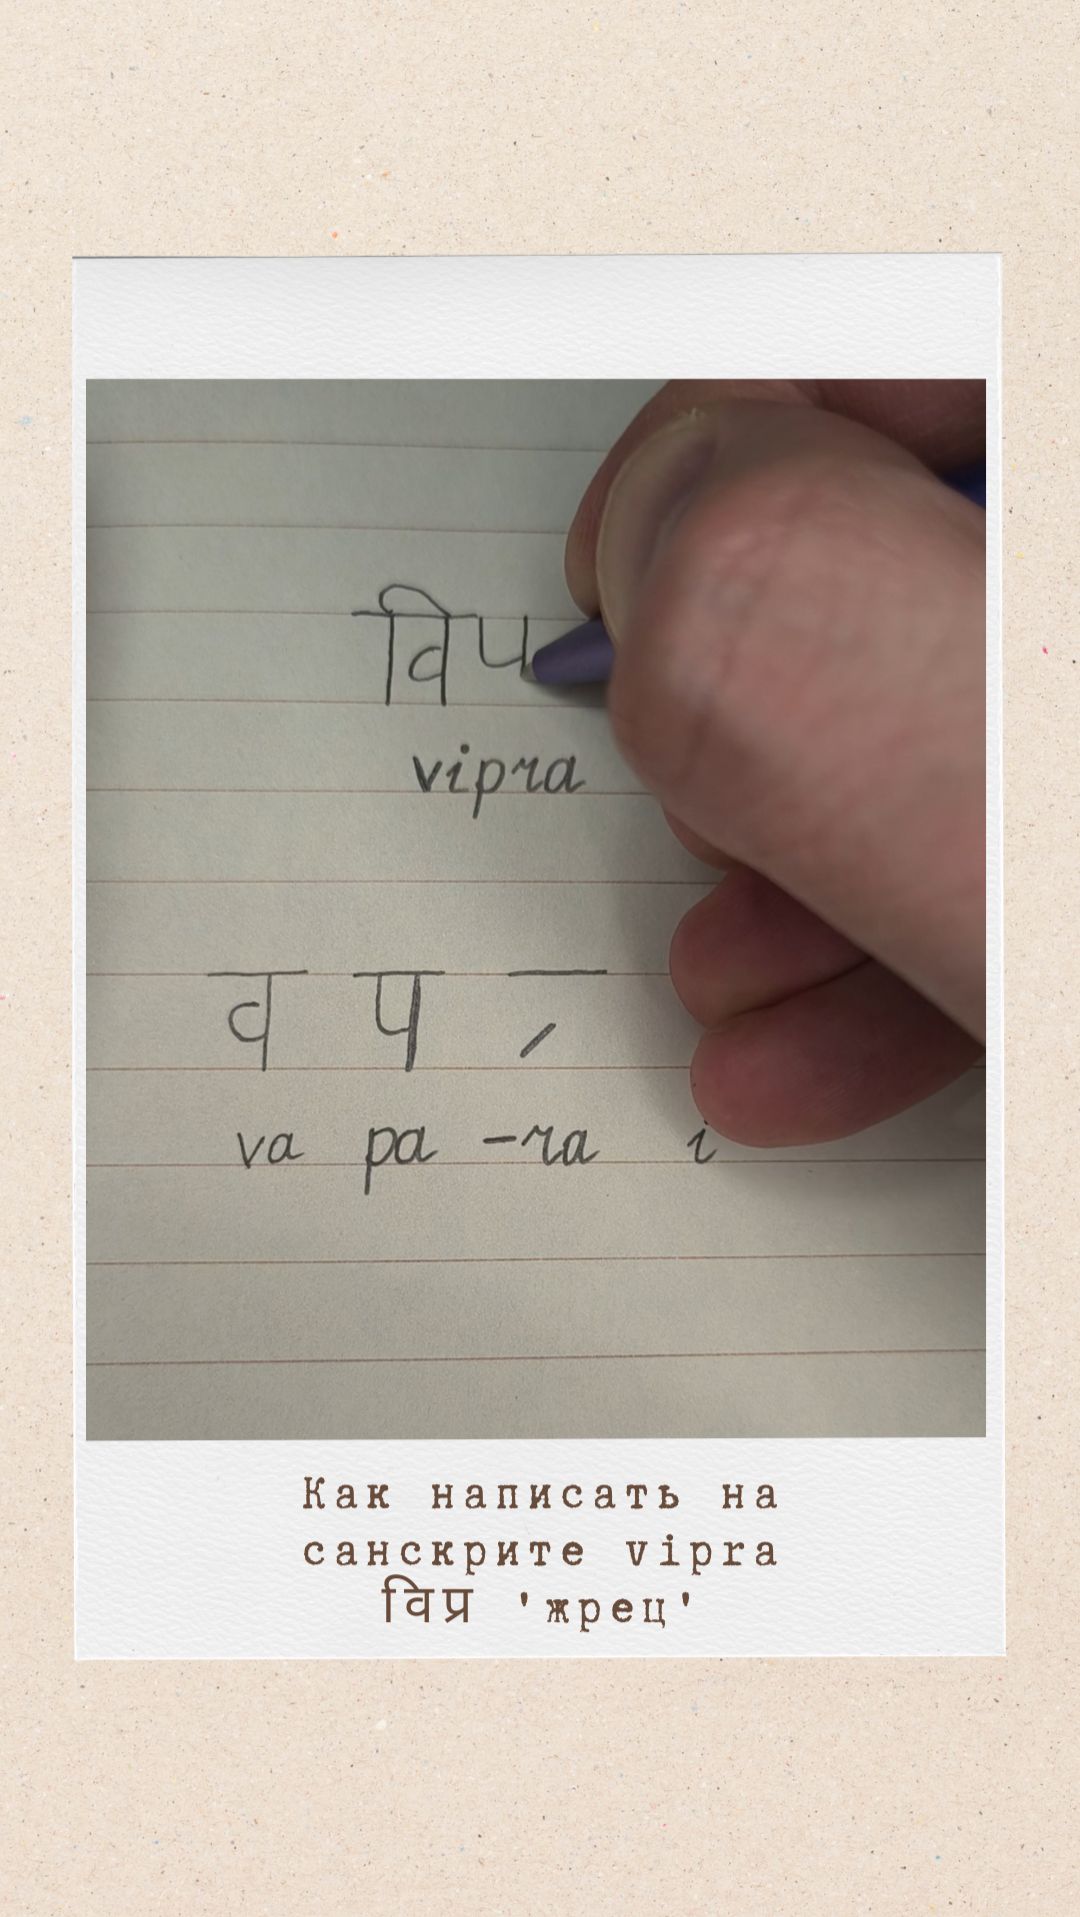 विप
vipra
व प ्र
va pa -ra i
Как написать на
санскрите vipra
विप्र 'жрец'